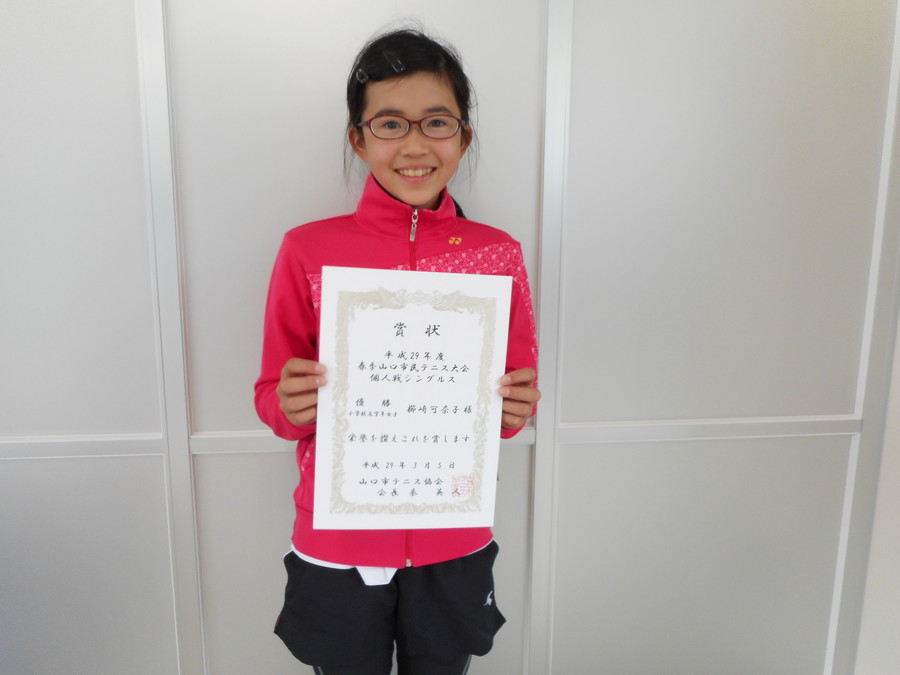 賞状
平成29年度
春季山口市民テニス大会
個人戦シングルス
優勝
小学校高学年女子
櫛崎可奈子様
栄誉を讃えこれを賞します
平成29年3月5日
山口市テニス協会
会長 秦 英